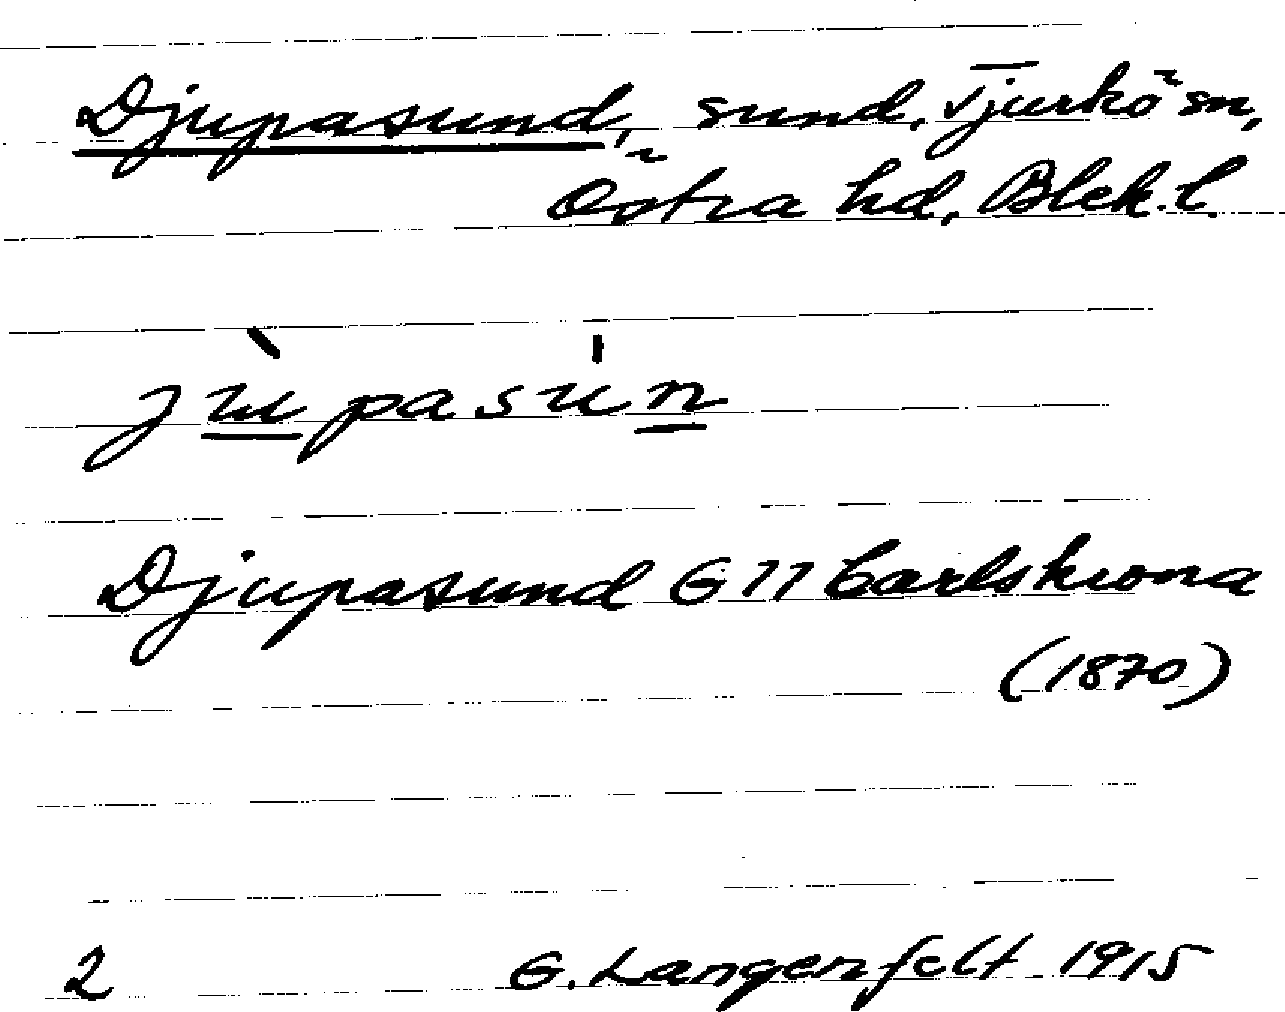 Djupasund, sund, Tjurkö sn,
Östra hd, Blek. l.
jùpasu'n
Djupasund G 77 Carlskrona
(1870)
2 G. Langenfelt 1915